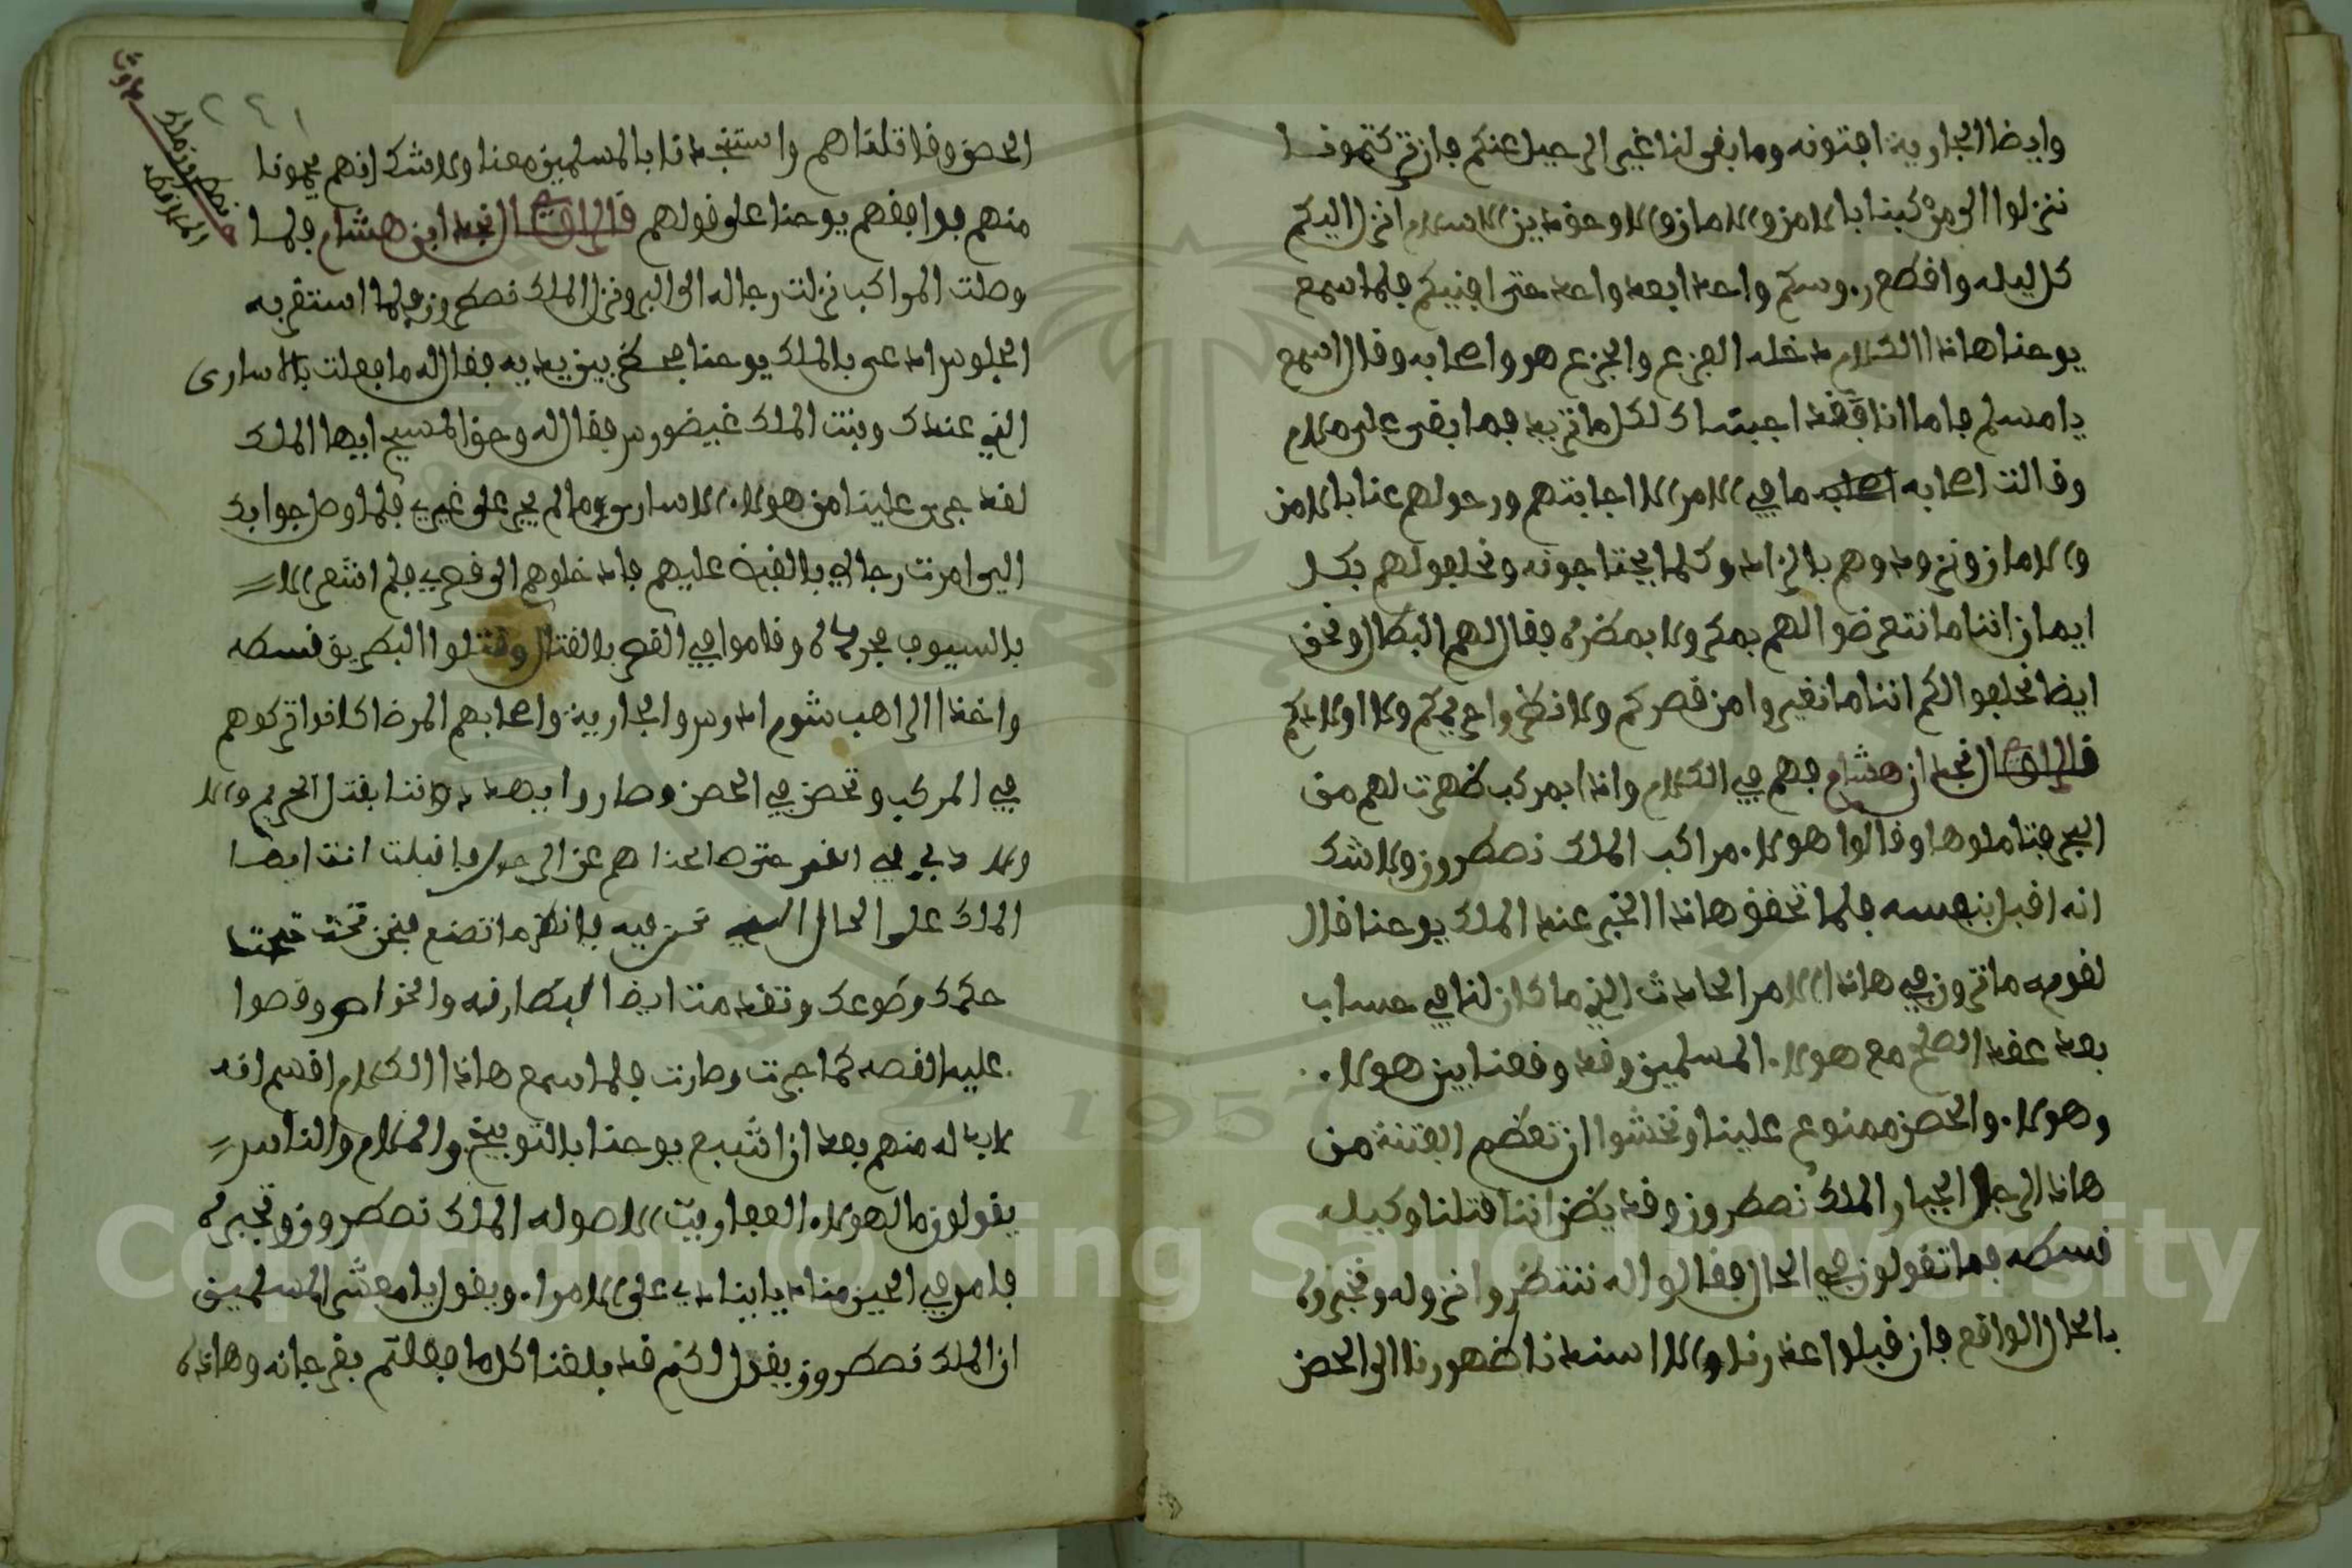 وايضا الجارية افتونه وما بقى لنا غير الرحيل عنكم فان تركتمونا
ننزلوا الى مركبنا بالامن والامان والا وحق دين الاسلام انزل اليكم
كل ليله واقطع روسكم واحد ابعد واحد حتى افنيكم فلما سمع
يوحنا هاذا الكلام دخله الفزع والجزع هو واصحابه وقال اسمع
يا مسلم فاما انا فقد اجبتك لكل ما تريد فما بقى علي ملام
وقالت اصحابه ما في الامر الا اجابتهم ورحولهم عنا بالامن
والامان ونزودوهم بالزاد وكلما يحتاجونه ونحلفولهم بكل
ايمان اننا ما نتعرضوا لهم بمكر ولا بمضره فقال لهم البطال ونحن
ايضا نحلفوا لكم اننا ما نغيروا من قصركم ولا نظروا حريمكم ولا اولادكم
قال الراوي نجد ابن هشام فهم في الكلام واذا بمركب ظهرت لهم من
البحر فتاملوها وقالوا هولاء مراكب الملك نصطرون ولا شك
انه اقبل بنفسه فلما تحقق هاذا الخبر عند الملك يوحنا قال
لقومه ما ترون في هاذا الامر الحادث الذي ما كان لنا في حساب
بعد عقد الصلح مع هولاء المسلمين وقد وقعنا بين هولاء
وهولاء والحصن ممنوع علينا ونخشوا ان تعظم الفتنة من
هاذا الرجل الجبار الملك نصطرون وقد يظن اننا قتلنا وكيله
نسطه فما تقولون في الحال فقالوا له ننتظروا نزوله ونخبروه
بالحال الواقع فان قبلوا عذرنا والا اسندنا ظهورنا الى الحصن
٢٤١
الحصن وقاتلناهم واستنجدنا بالمسلمين معنا ولا شك انهم يحمونا
منهم فوافقهم يوحنا على قولهم قال الراوي نجد ابن هشام فلما
وصلت المراكب نزلت رجاله الى البر ونزل الملك نصطرون فلما استقر به
الجلوس ادعى بالملك يوحنا فحضر بين يديه فقال له ما فعلت بالاسارى
الذي عندك وبنت الملك غيضورس فقال له وحق المسيح ايها الملك
لقد جرى علينا من هولاء الاسارى ما لم يجر على غيري فلما وصل جوابك
الي امرت رجالي بالقبض عليهم فادخلوهم الى قصري فلم انشعر الا
بالسيوف مجرداه وقاموا في القصر بالقتال وقتلوا البطريق نسطه
واخذا الراهب شوم ادرس والجارية واصحابهم المرضا كانوا تركوهم
في المركب وتحصن في الحصن وصاروا يهددوننا بقتل الحريم والا
حتى صالحناهم عن الرحيل فاقبلت انت ايها
الملك على الحال الذي نحن فيه فانظر ما تصنع فنحن تحت
حكمك وطوعك وتقدمت ايضا البطارقه والخواص وقصوا
عليه القصه كما جرت وصارت فلما سمع هاذا الكلام اقسم انه
لا بد له منهم بعد ان اشبع يوحنا بالتوبيخ والملام والناس
يقولون ما لهولاء العفاريت الا صوله الملك نصطرون وتجبره
فامر في الحين مناديا ينادي على الامراء ويقول يا معشر المسلمين
ان الملك نصطرون يقول لكم قد بلغنا كل ما فعلتم بفرجانه وهاذه